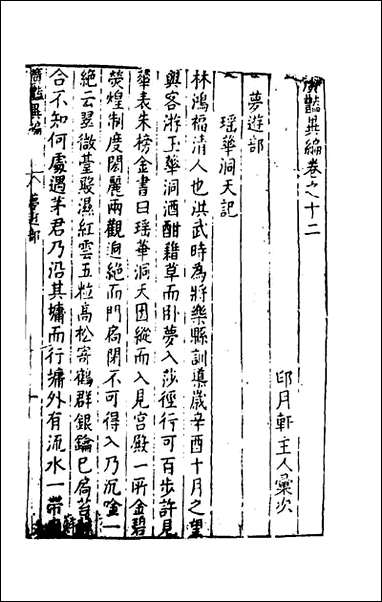 廣豔異編卷之十二
印月軒主人彙次
夢遊部
瑶華洞天記
林鴻福清人也洪武時為將樂縣訓導歲辛酉十月之望
與客游玉華洞酒酣藉草而卧夢入莎徑行可百步許見
華表朱榜金書曰瑶華洞天因縱而入見宫殿一所金碧
熒煌制度閎麗兩觀迥絶而門扃閉不可得入乃沉唫一
絶云翠微臺殿濕紅雲五粒高松寄鶴群銀鑰已扃苔
合不知何處遇茅君乃沿其墉而行墉外有流水一帶
廣豔異編
夢遊部